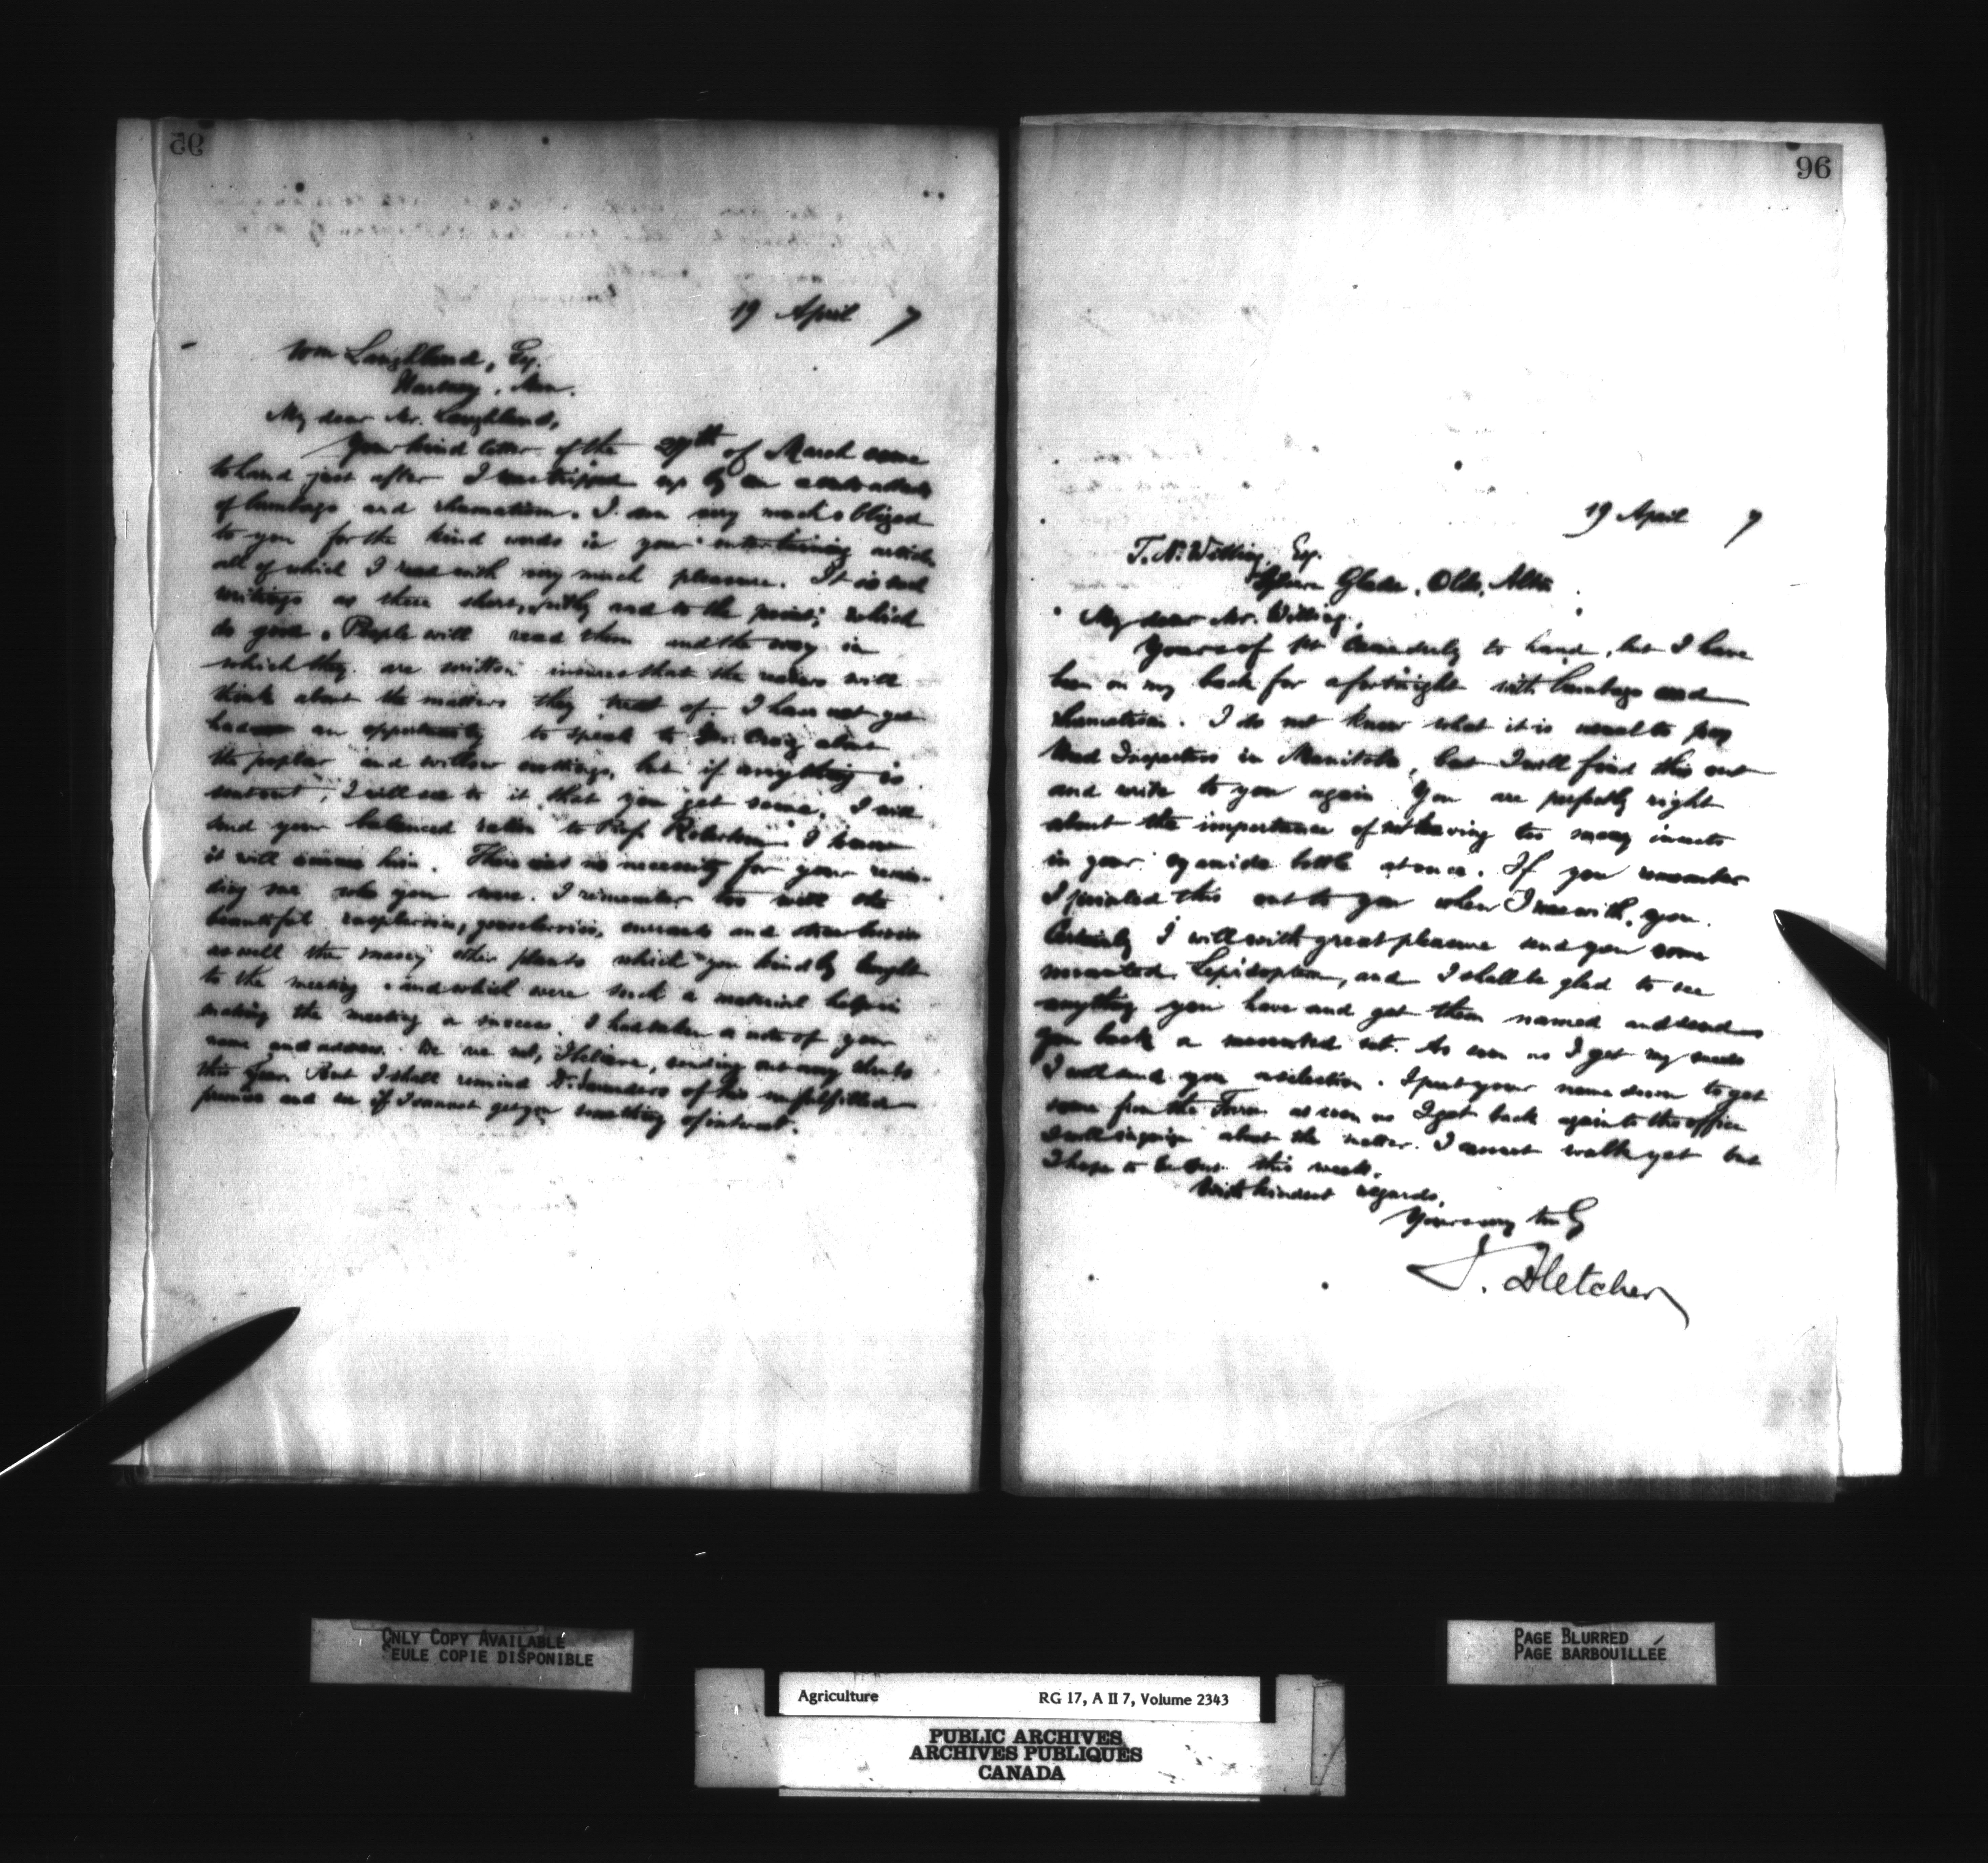 95
19 April 7
Wm Laughland, Esq.
Hartney, Man.
My dear Mr. Laughland,
Your kind letter of the 27th of March came
to hand just after I was tripped up by an acute attack
of lumbago and rhumatism. I am very much obliged
to you for the kind words in your entertaining article
all of which I read with very much pleasure. It is such
writings as these short, pithy and to the point, which
do good. People will read them and the way in
which they are written insures that the readers will
think about the matters they treat of. I have not yet
had an opportunity to speak to Mr. Craig about
the poplar and willow cuttings, but if anything is
sent out, I will see to it that you get some. I will
send your balanced ration to Prof. Robertson. I know
it will him. There was no necessity for your remin-
ding me who you were. I remember too well the
beautiful raspberries, gooseberries, currants and strawberries
as well the many other plants which you kindly brought
to the meeting and which were such a material help in
making the meeting a success. I had taken a note of your
name and address. We are not, I believe, sending out any
this year. But I shall remind Dr. Saunders of his unfulfilled
promise and see if I cannot get you something of interest.
96
19 April 7
T. N. Willing, Esq.
Glade, Olds, Alta
My dear Mr. Willing,
Yours of 1st came duly to hand, but I have
been on my back for a fortnight with lumbago and
rhumatism. I do not know what it is usual to pay
Weed Inspectors in Manitoba, but I will find this out
and write to you again. You are perfectly right
about the importance of not having too many insects
in your cyanide bottle at once. If you remember
I pointed this out to you when I was with you.
Certainly I will with great pleasure send you some
mounted Lepidoptera, and I shall be glad to see
anything you have and get them named and send
you back a mounted set. As soon as I get my seeds
I will send you a selection. I put your name down to get
some from the Farm as soon as I get back again to the office
I will inquire about the matter. I cannot walk yet but
I hope to be out this week.
With kindest regards,
Yours very truly
J. Fletcher
ONLY COPY AVAILABLE
SEULE COPIE DISPONIBLE
PAGE BLURRED
PAGE BARBOUILLÉE
Agriculture RG 17, A II 7, Volume 2343
PUBLIC ARCHIVES
ARCHIVES PUBLIQUES
CANADA